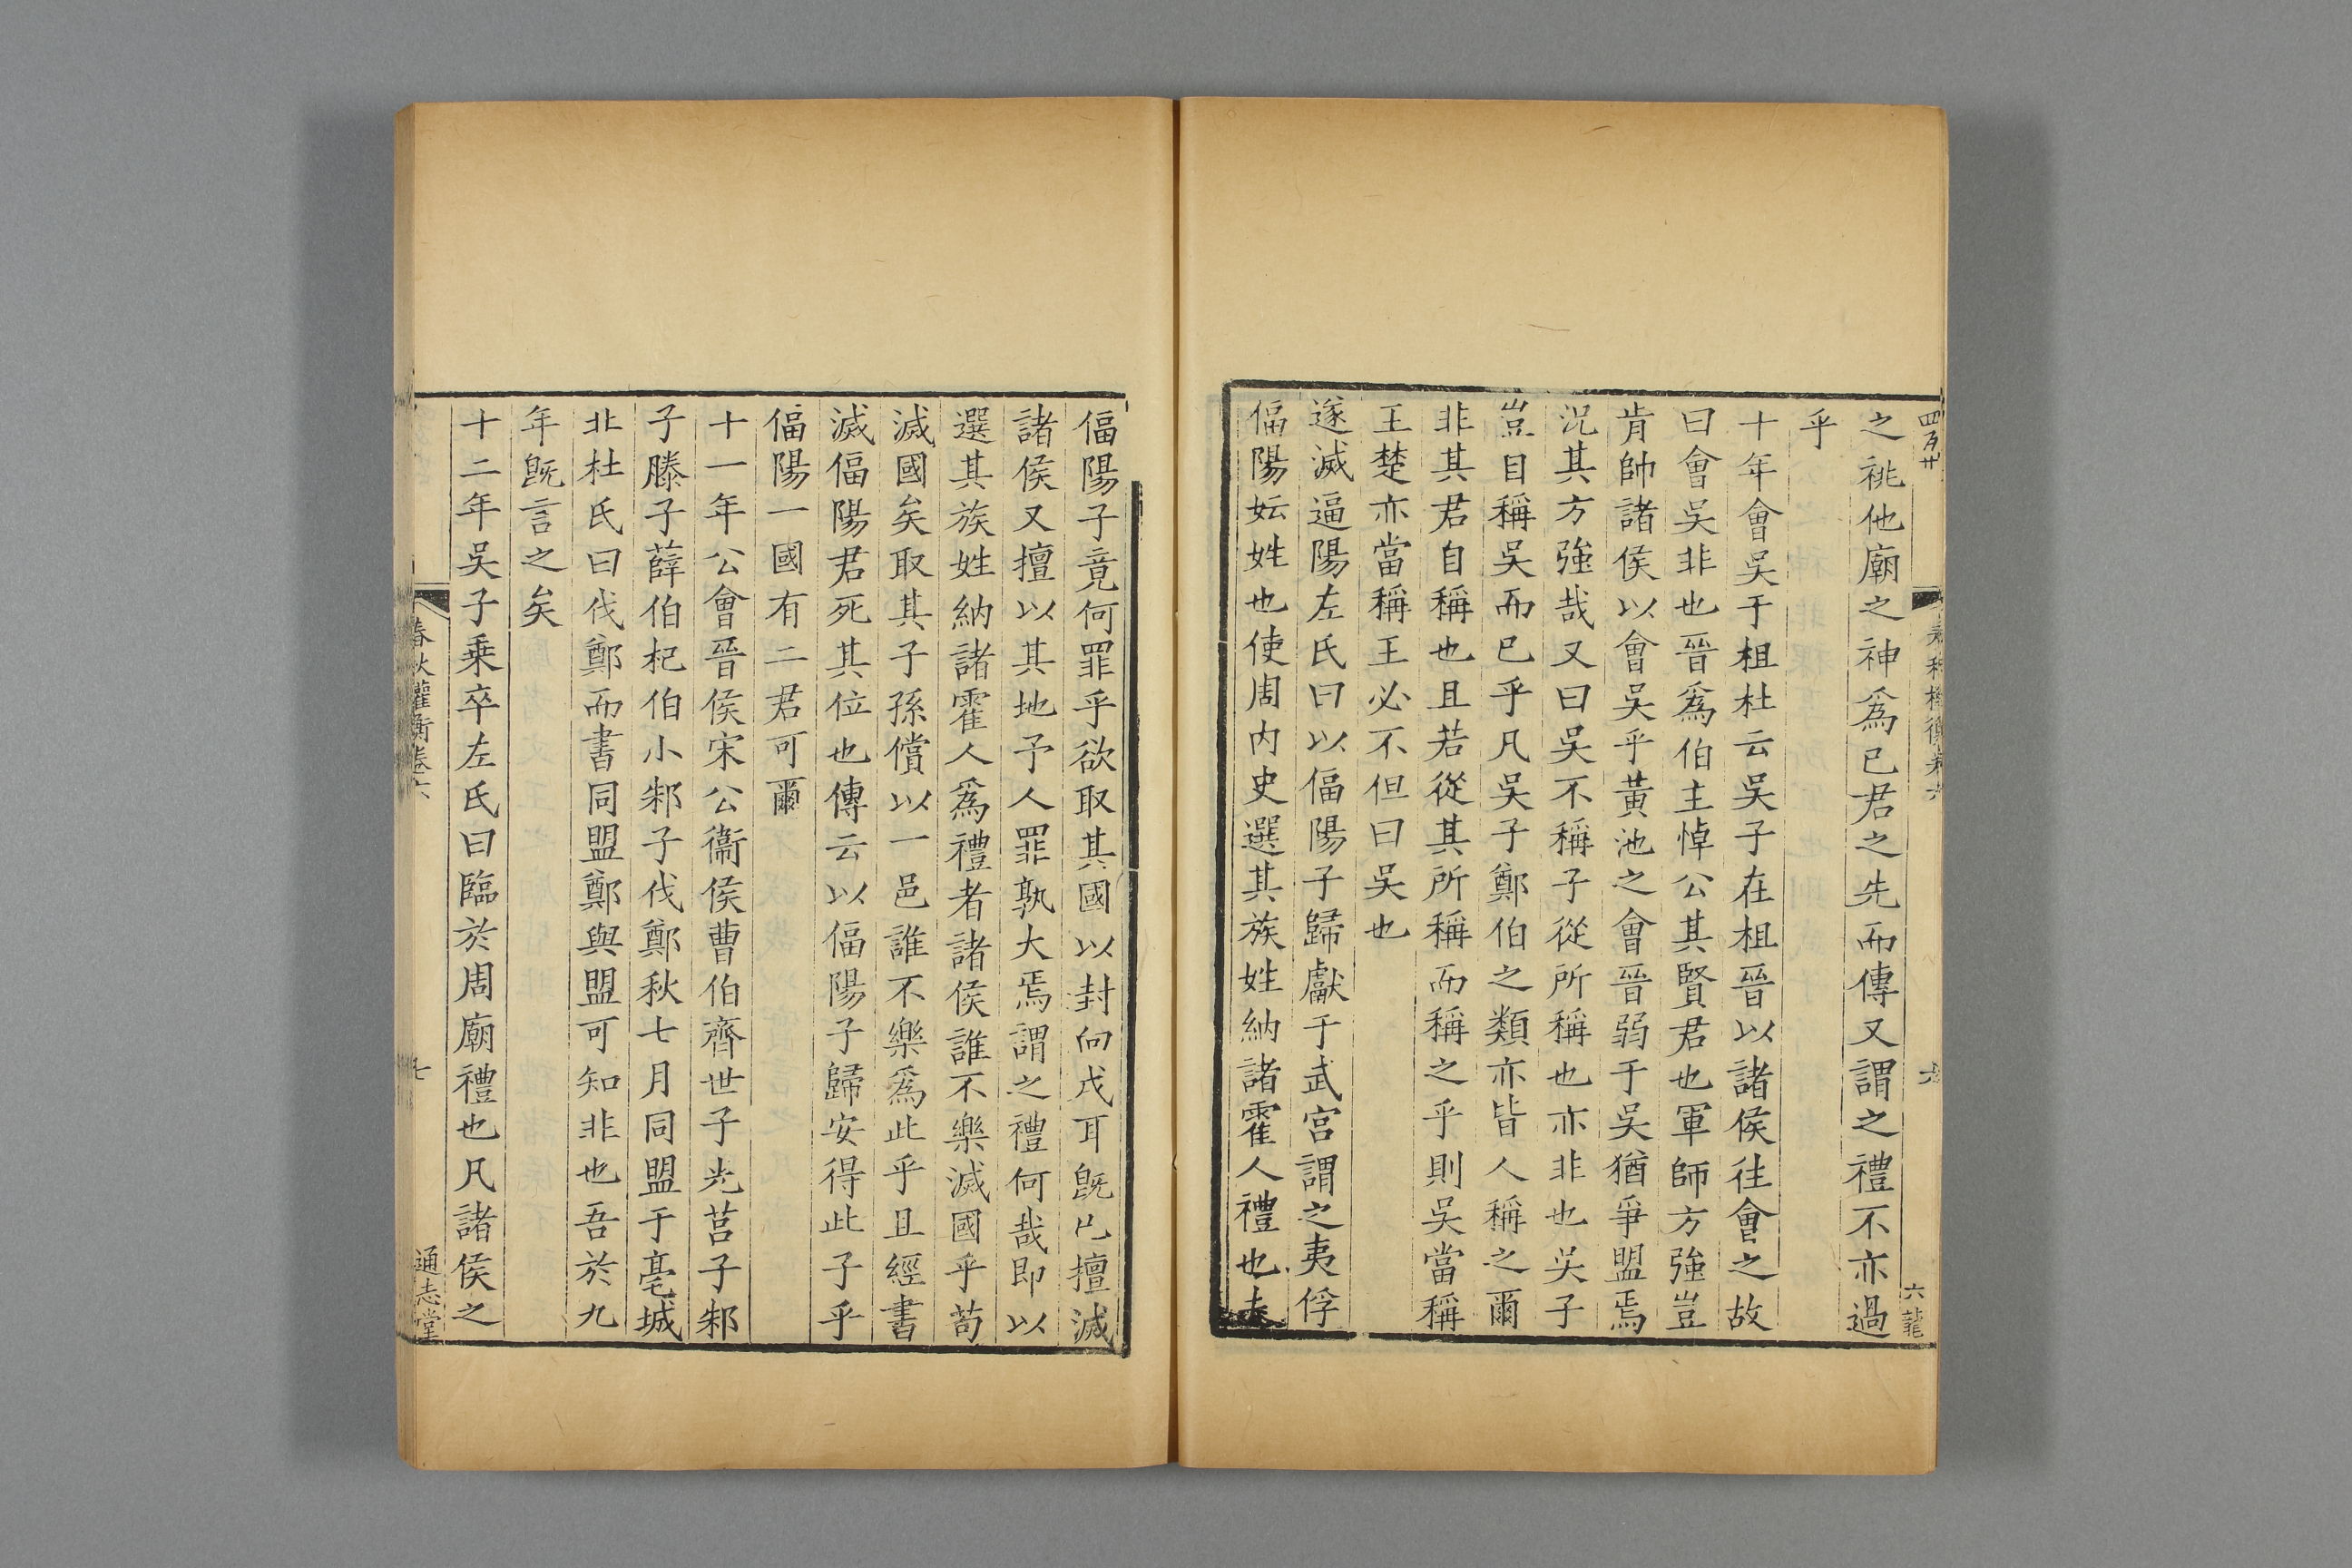 之祧他廟之神爲已君之先而傳又謂之禮不亦過
乎
十年會吳于柤杜云吳子在柤晉以諸侯往會之故
曰會吳非也晉爲伯主悼公其賢君也軍師方強豈
肯帥諸侯以會吳乎黃池之會晉弱于吳猶爭盟焉
況其方強哉又曰吳不稱子從所稱也亦非也吳子
豈自稱吳而已乎凡吳子鄭伯之類亦皆人稱之爾
非其君自稱也且若從其所稱而稱之乎則吳當稱
王楚亦當稱王必不但曰吳也
遂滅逼陽左氏曰以偪陽子歸獻于武宮謂之夷俘
偪陽妘姓也使周內史選其族姓納諸霍人禮也夫
六龍
偪陽子竟何罪乎欲取其國以封向戌耳旣已擅滅
諸侯又擅以其地予人罪孰大焉謂之禮何哉即以
選其族姓納諸霍人爲禮者諸侯誰不樂滅國乎苟
滅國矣取其子孫償以一邑誰不樂爲此乎且經書
滅偪陽君死其位也傳云以偪陽子歸安得此子乎
偪陽一國有二君可爾
十一年公會晉侯宋公衞侯曹伯齊世子光莒子邾
子滕子薛伯杞伯小邾子伐鄭秋七月同盟于亳城
北杜氏曰伐鄭而書同盟鄭與盟可知非也吾於九
年旣言之矣
十二年吳子乘卒左氏曰臨於周廟禮也凡諸侯之
春秋權衡卷六
七
通志堂